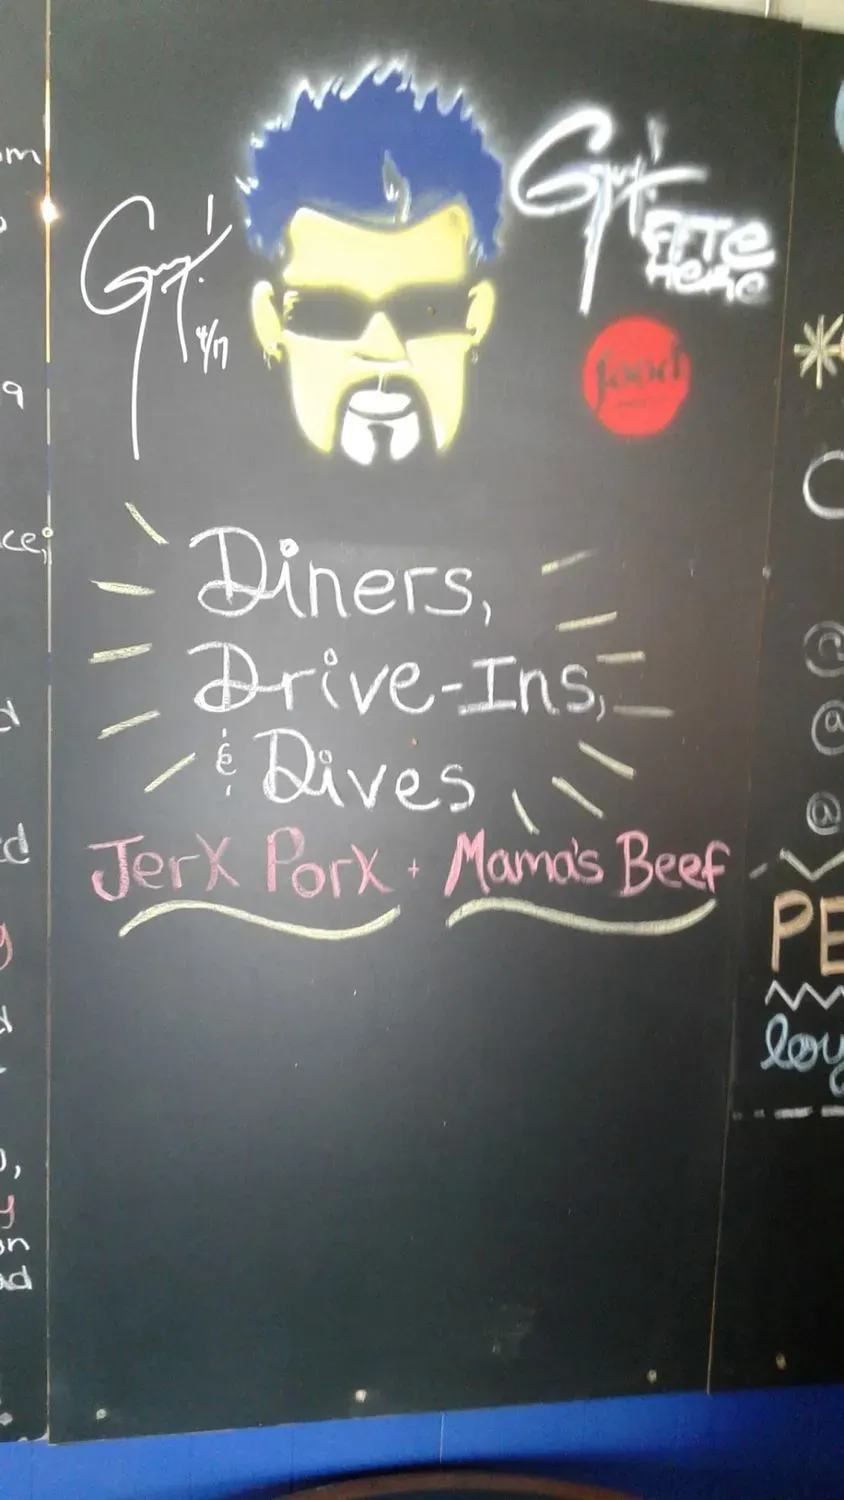 Guy!
4/17
Guy!
ATE
HERE
food
Diners,
Drive-Ins,
& Dives
Jerk Pork + Mama's Beef
PE
loy
om
9
ce;